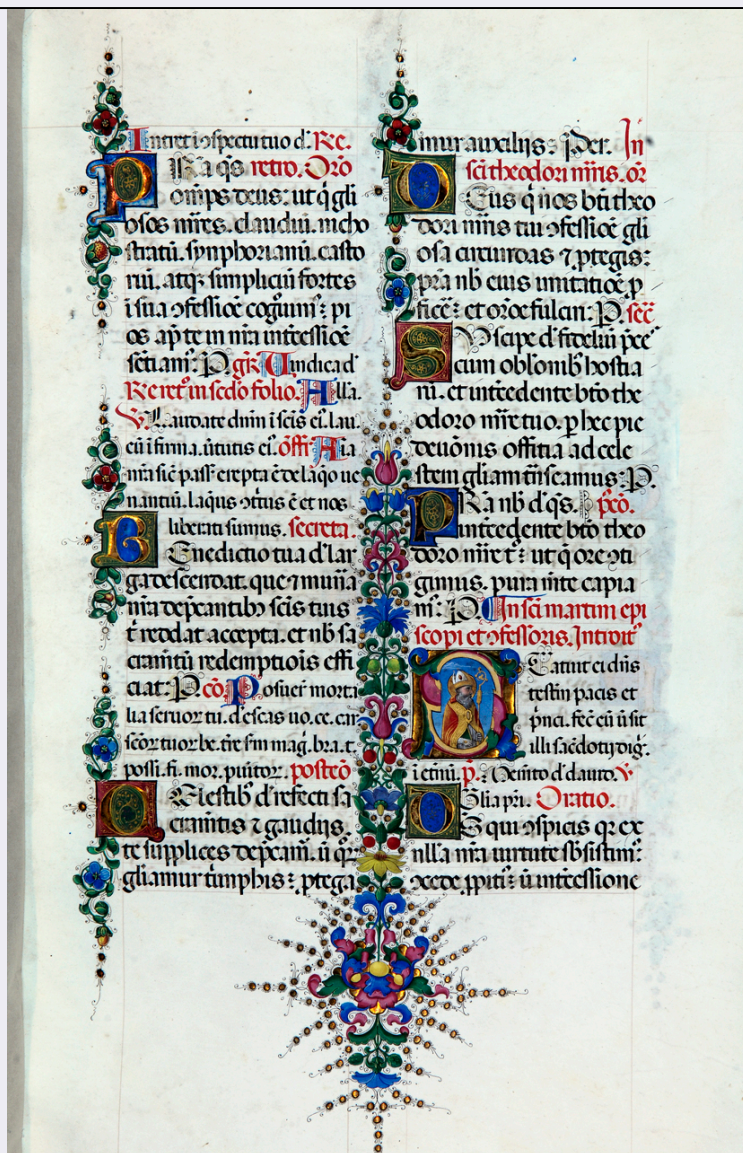 Intret i ɔspectu tuo d'. Re.
P Ra q̄s retro. Oro
om̄ps deus: ut q̄ gli
osos m̄res. claudiū. nicho
stratū. synphorianū. casto
riū. atq; simpliciū fortes
i sua ɔfessiōe cogūim᷒: pi
os ap̄ te in nr̄a intc̄essiōe
sētiam᷒: P. gr̄. Uindica d'
Re ret' in scd̄o folio. Alla.
V. Laudate dnm̄ i scīs ei᷒. lau.
eū i firma. ūtutis ei᷒. offi Aīa
nr̄a sic̄ pass̄ erepta ē de laq̄o ue
nantiū. laq̄us ɔtritus ē et nos
liberati sumus. secreta.
Benedictio tua d' lar
ga descendat. que ⁊ munīa
nr̄a dep̄cantib᷒ scīs tuis
t̄ reddat accepta. et nb̄ sa
cram̄tū redemptiōis effi
ciat: P cō Posuer̄ morta
lia seruor̄ tu. d'. escas uo. ce. car̄
scōr̄ tuor̄ be. tr̄e s̄m mag. bra. t.
possi. fi. mor. puitor̄. postcō
Celestib᷒ d' refecti sa
cram̄tis ⁊ gaudiis.
te supplices dep̄cam᷒. ū q̄r᷒
gliamur t̄umphis: ꝓtega
mur auxiliis: Per. In
scī theodori m̄ris. or̄
Deus q̄ nos btī theo
dori m̄ris tui ɔfessiōe gli
osa circūdas ⁊ ꝓtegis:
pr̄a nb̄ eius imitatiōe ꝓ
ficē: et orōe fulciri: P. sec̄
Suscipe d' fideliū p̄ce᷒
cum obl'onib᷒ hostia
rū. et intc̄edente btō the
odoro m̄re tuo. p hec pie
deuōnis offitia ad cele
stem gliam t̄nseamus: P.
PRa nb̄ d' q̄s. pcō.
intc̄edente btō theo
doro m̄re t᷒: ut q̄ ore ɔti
gimus. pura m̄te capia
m᷒: P. In scī martini epi
scopi et ɔfessoris. Introit᷒
Statuit ei dn̄s
testm̄ pacis et
p̄ncī. fec̄ eū ū sit
illi sac̄dotii dig.
i et̄nū. p. Memto d' dauid. V
Glia pri. Oratio.
DS qui ɔspicis q̄ ex
nlla nr̄a uirtute sb̄sistim᷒:
ɔcede ꝓpiti᷒: ū intc̄essione